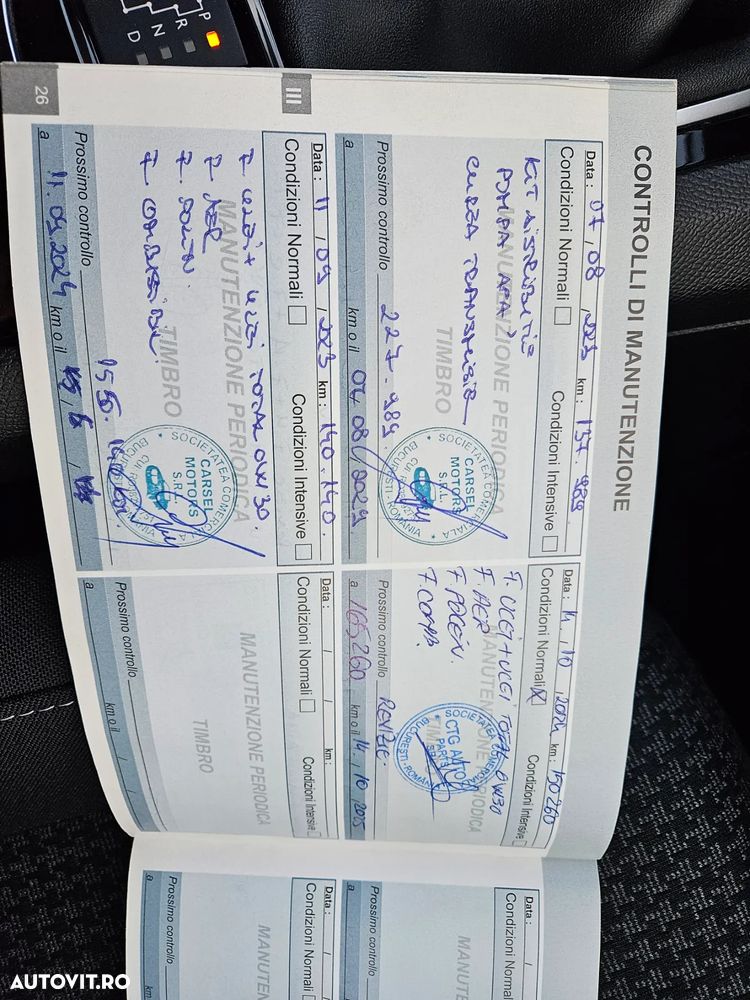 P
R
N
D
CONTROLLI DI MANUTENZIONE
Data : 07 / 08 / 2023 km : 137.989
Condizioni Normali Condizioni Intensive
MANUTENZIONE PERIODICA
TIMBRO
KIT DISTRIBUTIE
POMPA APA
CUREA TRANSMISIE
SOCIETATEA COMERCIALA
CARSEL
MOTORS
S.R.L.
BUCURESTI - ROMANIA
Prossimo controllo 227.989
a km o il 07 / 08 / 2029
Data : 11 / 09 / 2023 km : 140.140
Condizioni Normali Condizioni Intensive
MANUTENZIONE PERIODICA
TIMBRO
F. ULEI + ULEI TOTAL 0W30.
F. AER
F. POLEN.
SOCIETATEA COMERCIALA
CARSEL
MOTORS
S.R.L.
Prossimo controllo
a 11.09.2024 km o il
III
26
Data : 14 / 10 / 2024 km : 150260
Condizioni Normali X Condizioni Intensive
MANUTENZIONE PERIODICA
F. ULEI + ULEI TOTAL 0W30
F. AER
F. POLEN.
F. COMB.
SOCIETATEA COMERCIALA
CTG AUTO
PARTS
BUCURESTI - ROMANIA
Prossimo controllo REVIZIE.
a 165260 km o il 14 / 10 / 2025
Data : / / km :
Condizioni Normali Condizioni Intensive
MANUTENZIONE PERIODICA
TIMBRO
Prossimo controllo
a km o il / /
Data : /
Condizioni Normali
MANUTENZIONE
Prossimo controllo
a
Data : /
Condizioni Normali
MANUTENZIONE
Prossimo controllo
a km
AUTOVIT.RO